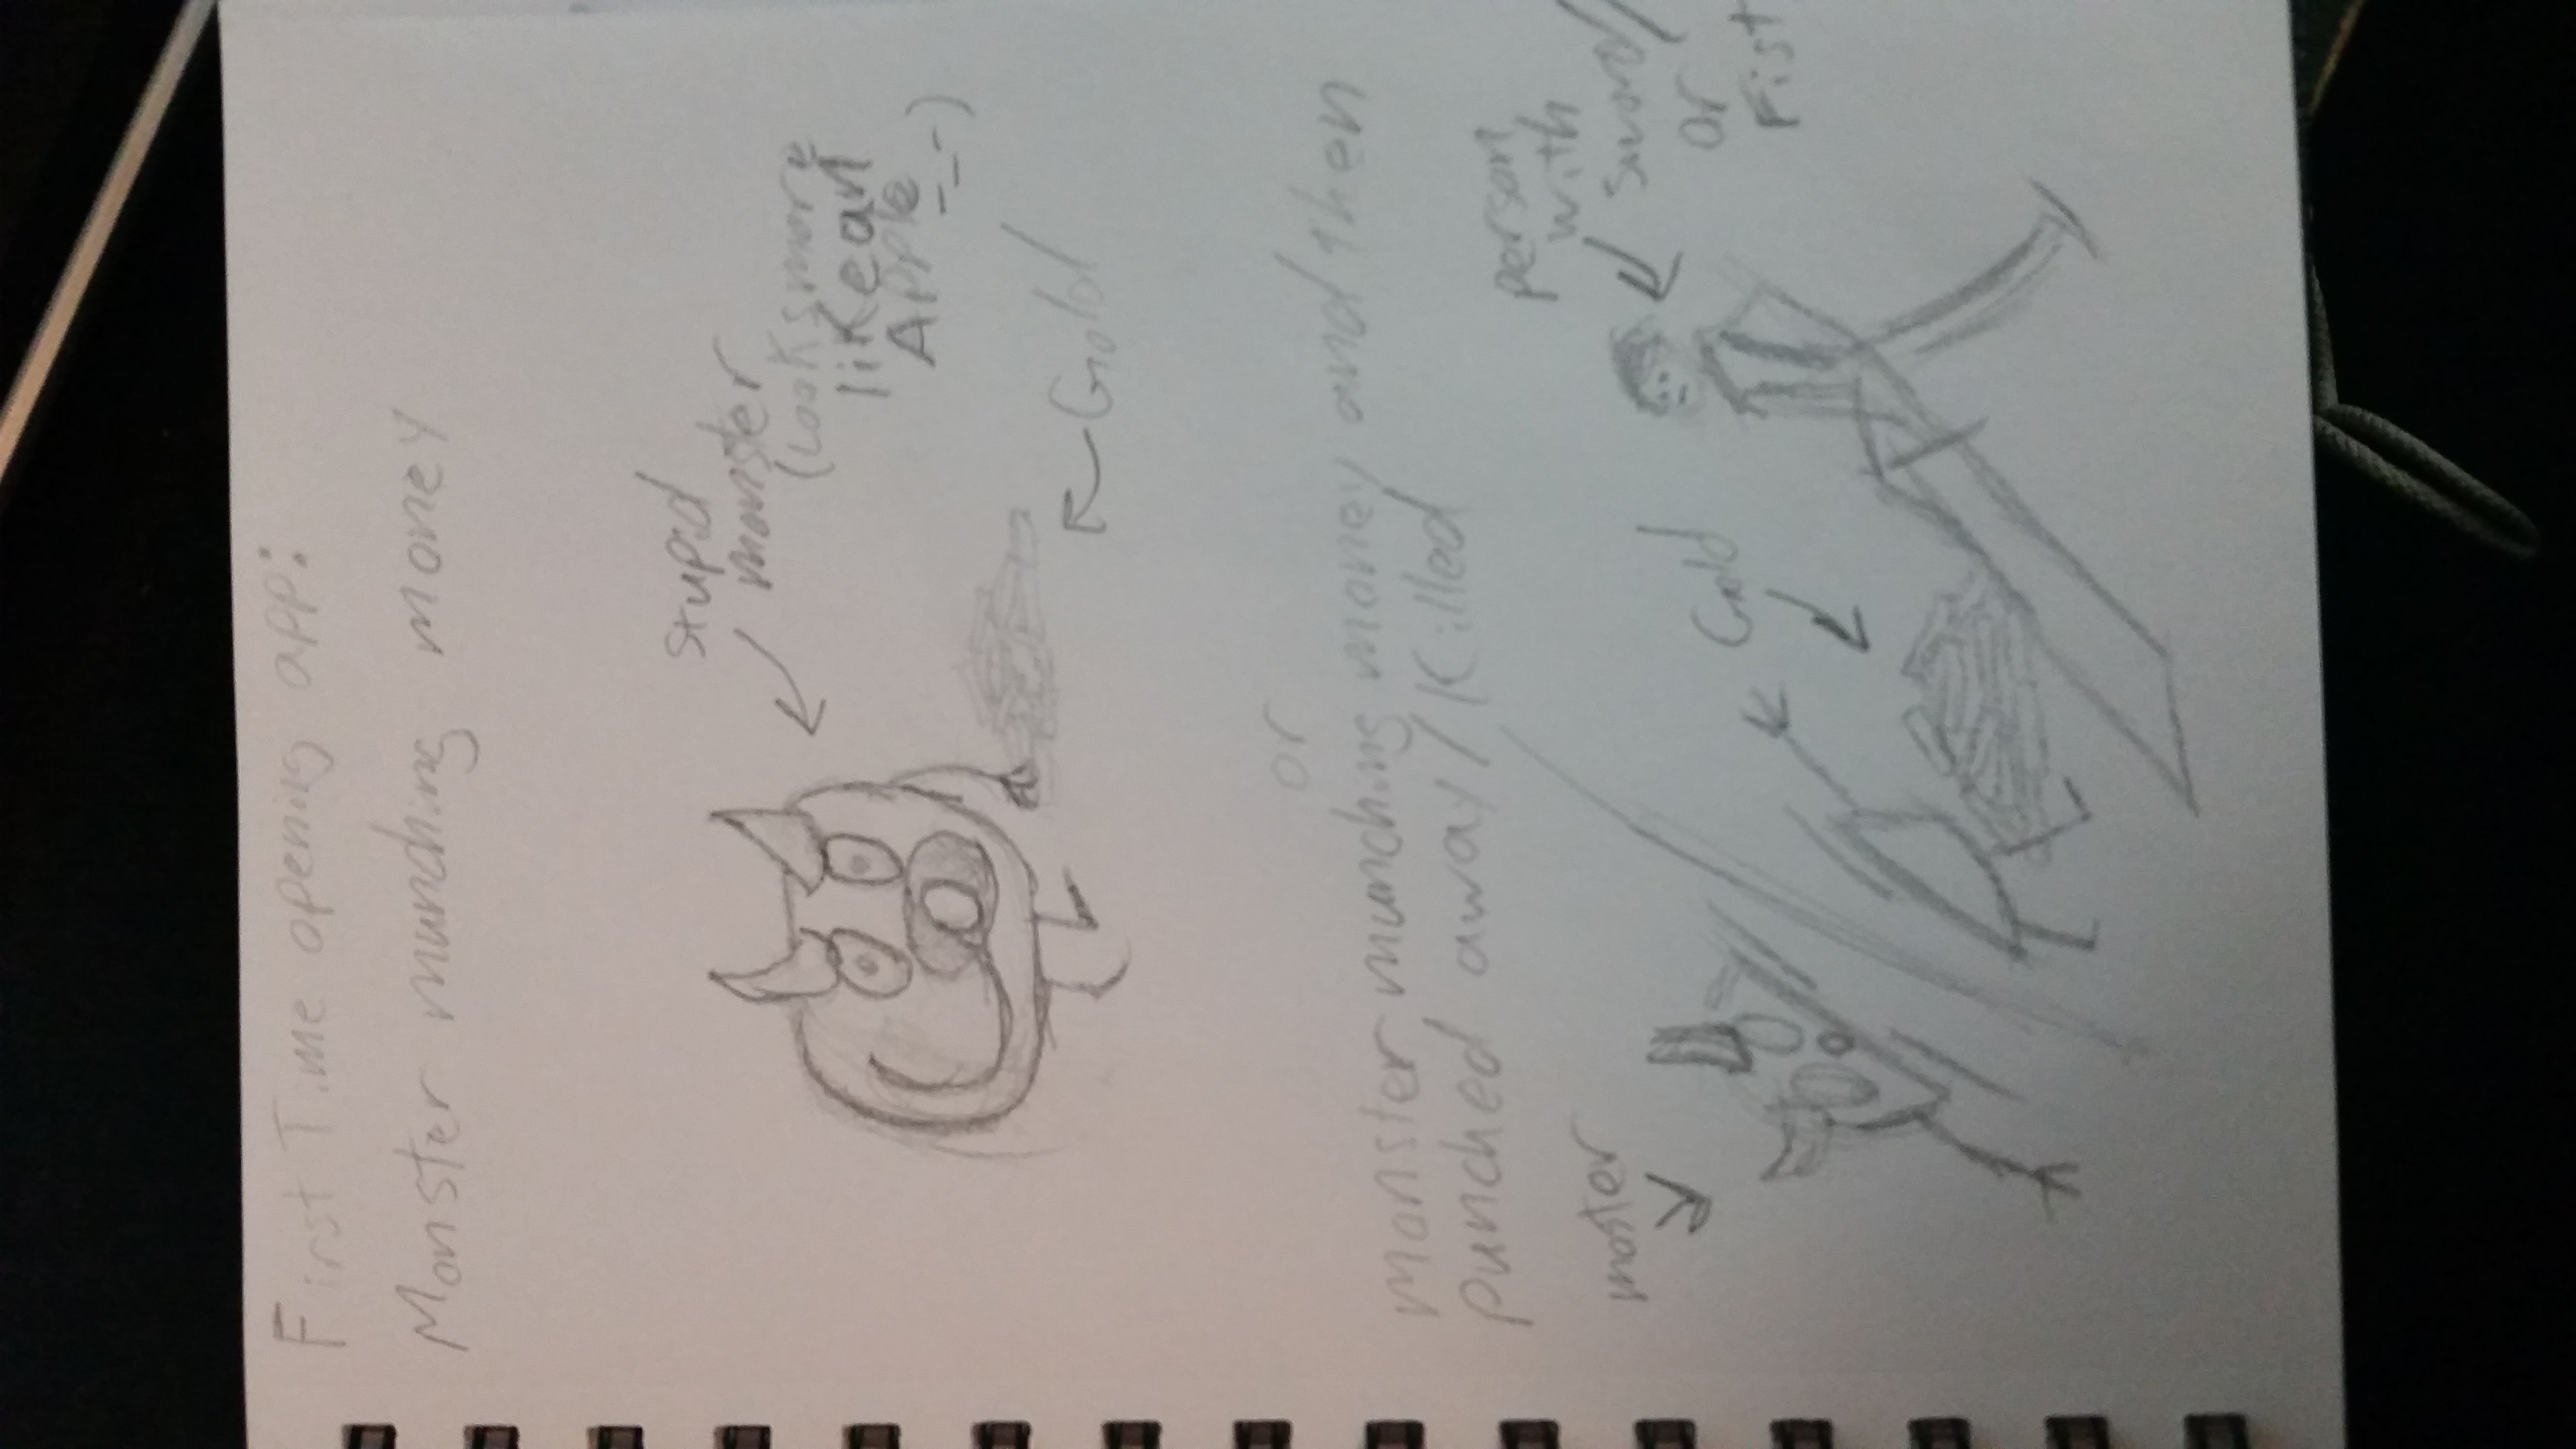 First Time opening app:
Monster munching money
stupid
monster
(Looks more
like an
Apple
-_-)
Gold
or
monster munching money and then
punched away/Killed
person
with
sword/
or
Fist
moster
Gold